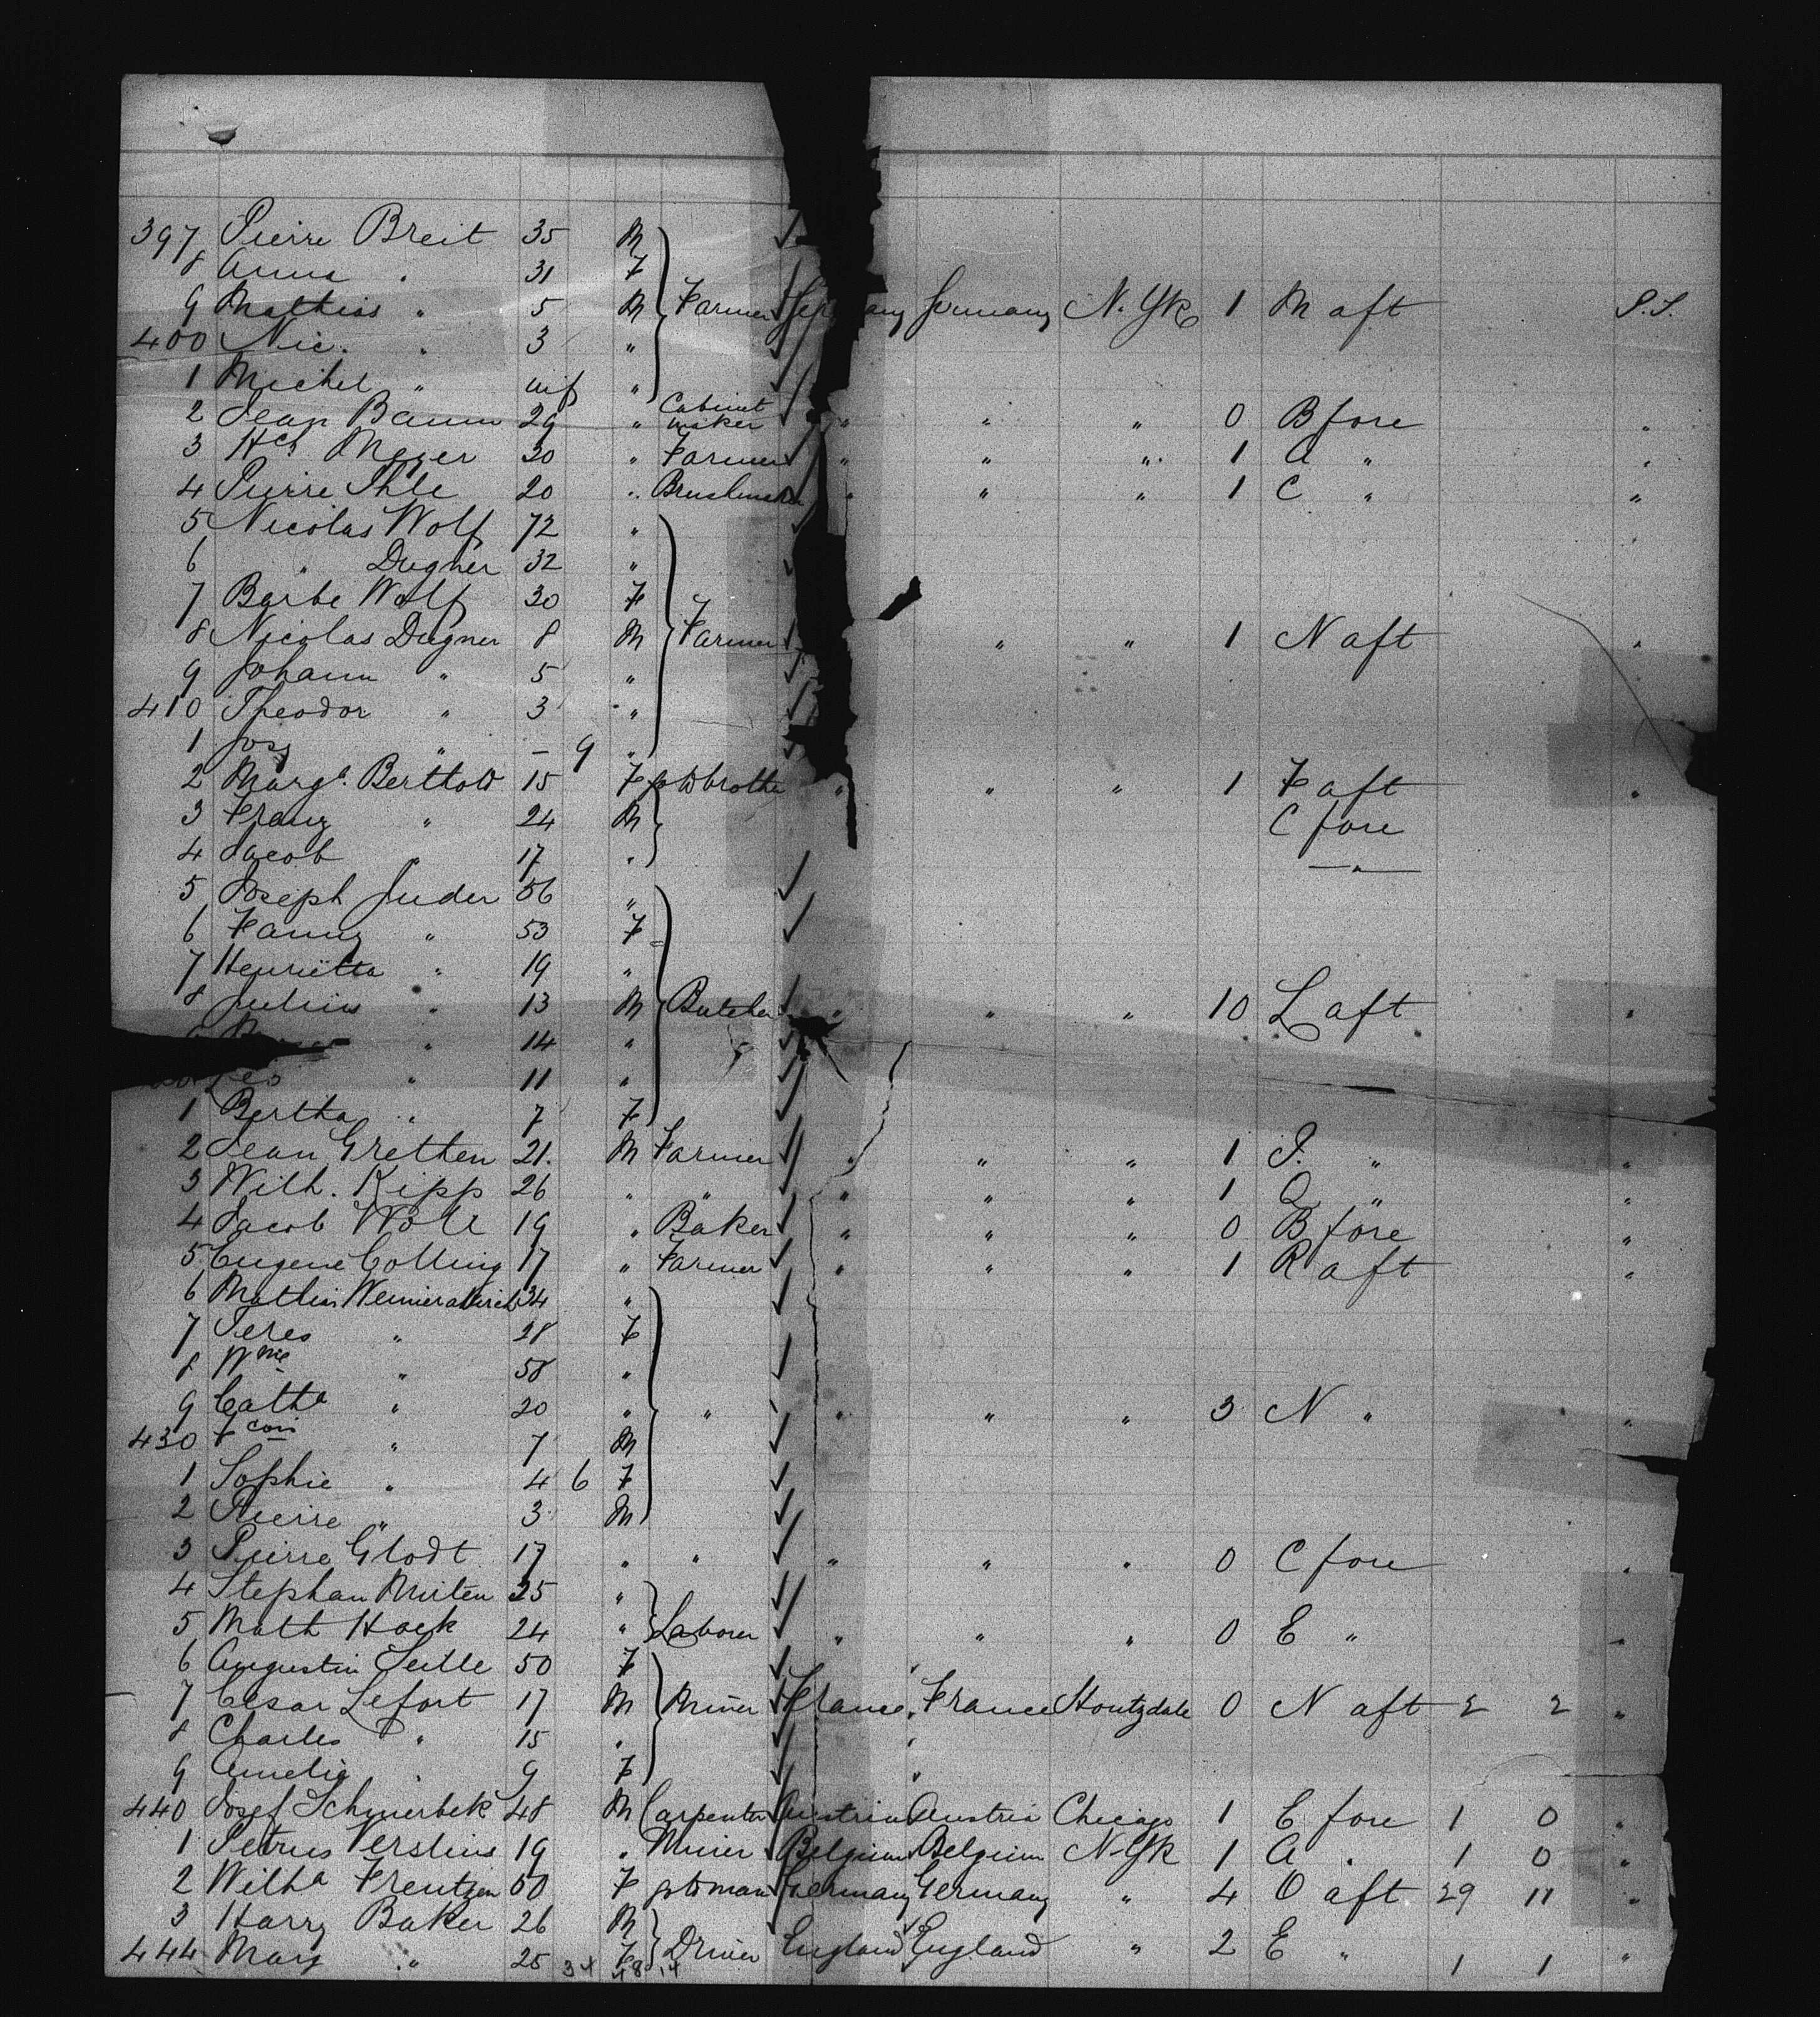 397 Pierre Breit 35 M
8 Anna " 31 F
9 Mathias " 5 M Farmer Germany Germany N. Yk 1 M aft S.S.
400 Nic. " 3 "
1 Michel " inf "
2 Jean Baum 29 " Cabinet maker " " " 0 B fore "
3 Hch Meyer 30 " Farmer " " " 1 A " "
4 Pierre Ihle 20 " Brushmaker " " " 1 C " "
5 Nicolas Wolf 72 "
6 " Dugner 32 "
7 Barbe Wolf 30 F
8 Nicolas Dugner 8 M Farmer " " 1 N aft "
9 Johann " 5 "
410 Theodor " 3 "
1 Josy " – 9 "
2 Marg. Berthold 15 F to brother " " " 1 F aft "
3 Franz " 24 M C fore
4 Jacob " 17 " — " —
5 Joseph Juder 56 "
6 Fanny " 53 F
7 Henriëtta " 19 "
8 Julius " 13 M Butcher " " " 10 L aft "
" 14 "
Leo " 11 "
1 Bertha " 7 F
2 Jean Gretten 21. M Farmer " " " 1 P. " "
3 Wilh. Kipp 26 " " " " " 1 Q " "
4 Jacob 19 " Baker " " " 0 B fore "
5 Eugene Colling 17 " Farmer " " " 1 R aft "
6 Mathias 34 "
7 Teres " 28 F
8 Wme " 58 "
9 Catha " 20 " " " " " 3 N " "
430 Fcois " 7 M
1 Sophie " 4 6 F
2 Pierre " 3 M
3 Pierre Glodt 17 " " " " " 0 C fore "
4 Stephan 25 "
5 Math Hock 24 " Laborer " " " 0 E " "
6 Augustin 50 F
7 Cesar Lefort 17 M Miner France France Houtzdale 0 N aft 2 2 "
8 Charles " 15 "
9 Amelia " 9 F
440 Josef Schmerbek 48 M Carpenter Austria Austria Chicago 1 E fore 1 0 "
1 Petrus Verslius 19 " Miner Belgium Belgium N-Yk 1 A " 1 0 "
2 Wilha Frentzen 50 F Germany Germany " 4 O aft 29 11 "
3 Harry Baker 26 M
444 Mary " 25 F Driver England England " 2 E " 1 1 "
34 48 14